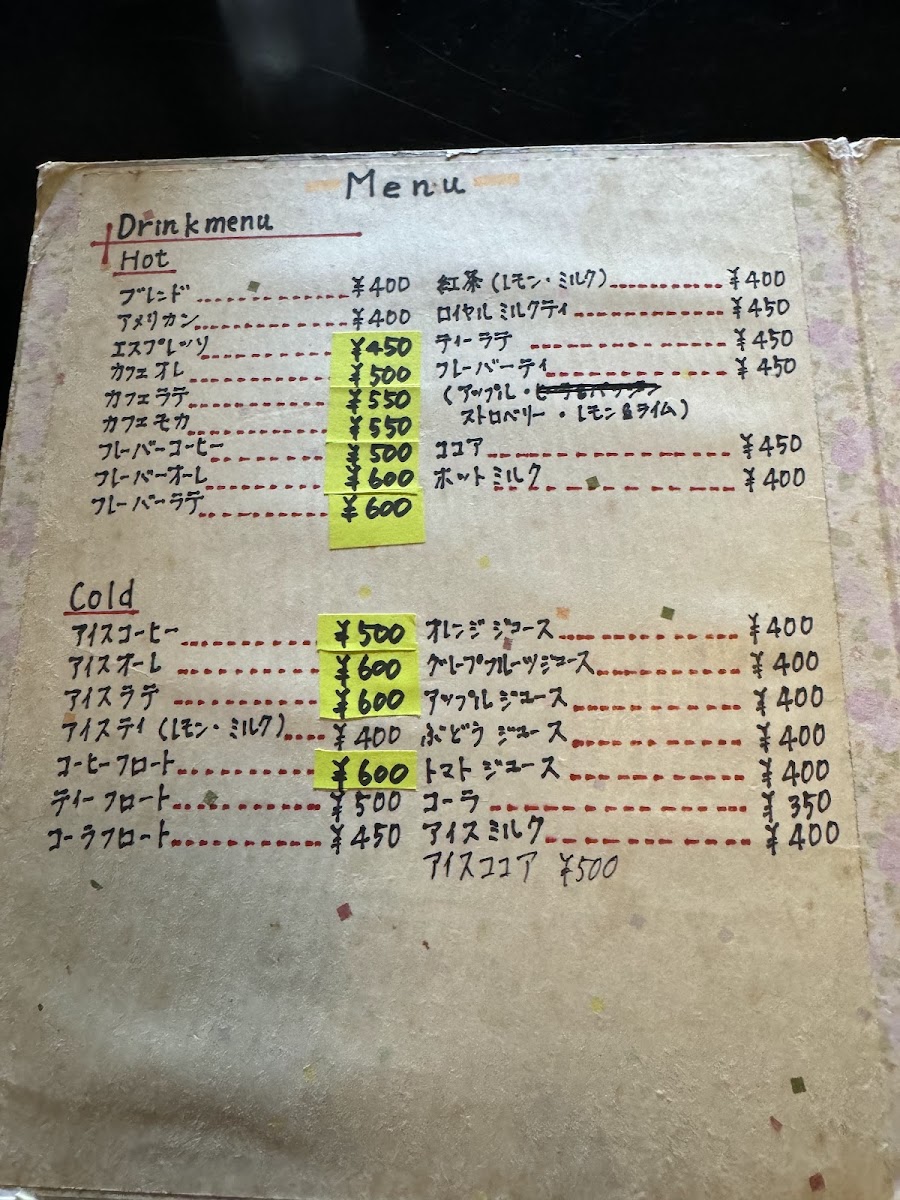 Menu
Drinkmenu
Hot
ブレンド ¥400
アメリカン ¥400
エスプレッソ ¥450
カフェオレ ¥500
カフェラテ ¥550
カフェモカ ¥550
フレーバーコーヒー ¥500
フレーバーオーレ ¥600
フレーバーラテ ¥600
紅茶(レモン・ミルク) ¥400
ロイヤルミルクティ ¥450
ティーラテ ¥450
フレーバーティ ¥450
(アップル・
ストロベリー・レモン&ライム)
ココア ¥450
ホットミルク ¥400
Cold
アイスコーヒー ¥500
アイスオーレ ¥600
アイスラテ ¥600
アイスティ(レモン・ミルク) ¥400
コーヒーフロート ¥600
ティーフロート ¥500
コーラフロート ¥450
オレンジジュース ¥400
グレープフルーツジュース ¥400
アップルジュース ¥400
ぶどうジュース ¥400
トマトジュース ¥400
コーラ ¥350
アイスミルク ¥400
アイスココア ¥500